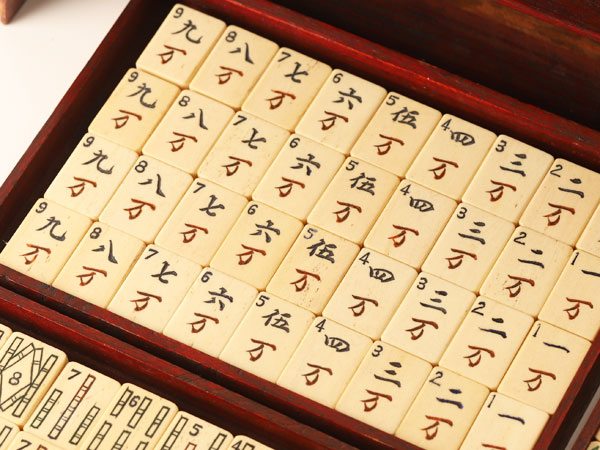 9 九 8 八 7 七 6 六 5 伍 4 四 3 三 2 二
万 万 万 万 万 万 万 万
9 九 8 八 7 七 6 六 5 伍 4 四 3 三 2 二 1 一
万 万 万 万 万 万 万 万 万
9 九 8 八 7 七 6 六 5 伍 4 四 3 三 2 二 1 一
万 万 万 万 万 万 万 万 万
9 九 8 八 7 七 6 六 5 伍 4 四 3 三 2 二 1 一
万 万 万 万 万 万 万 万 万
8 7 6 5 4